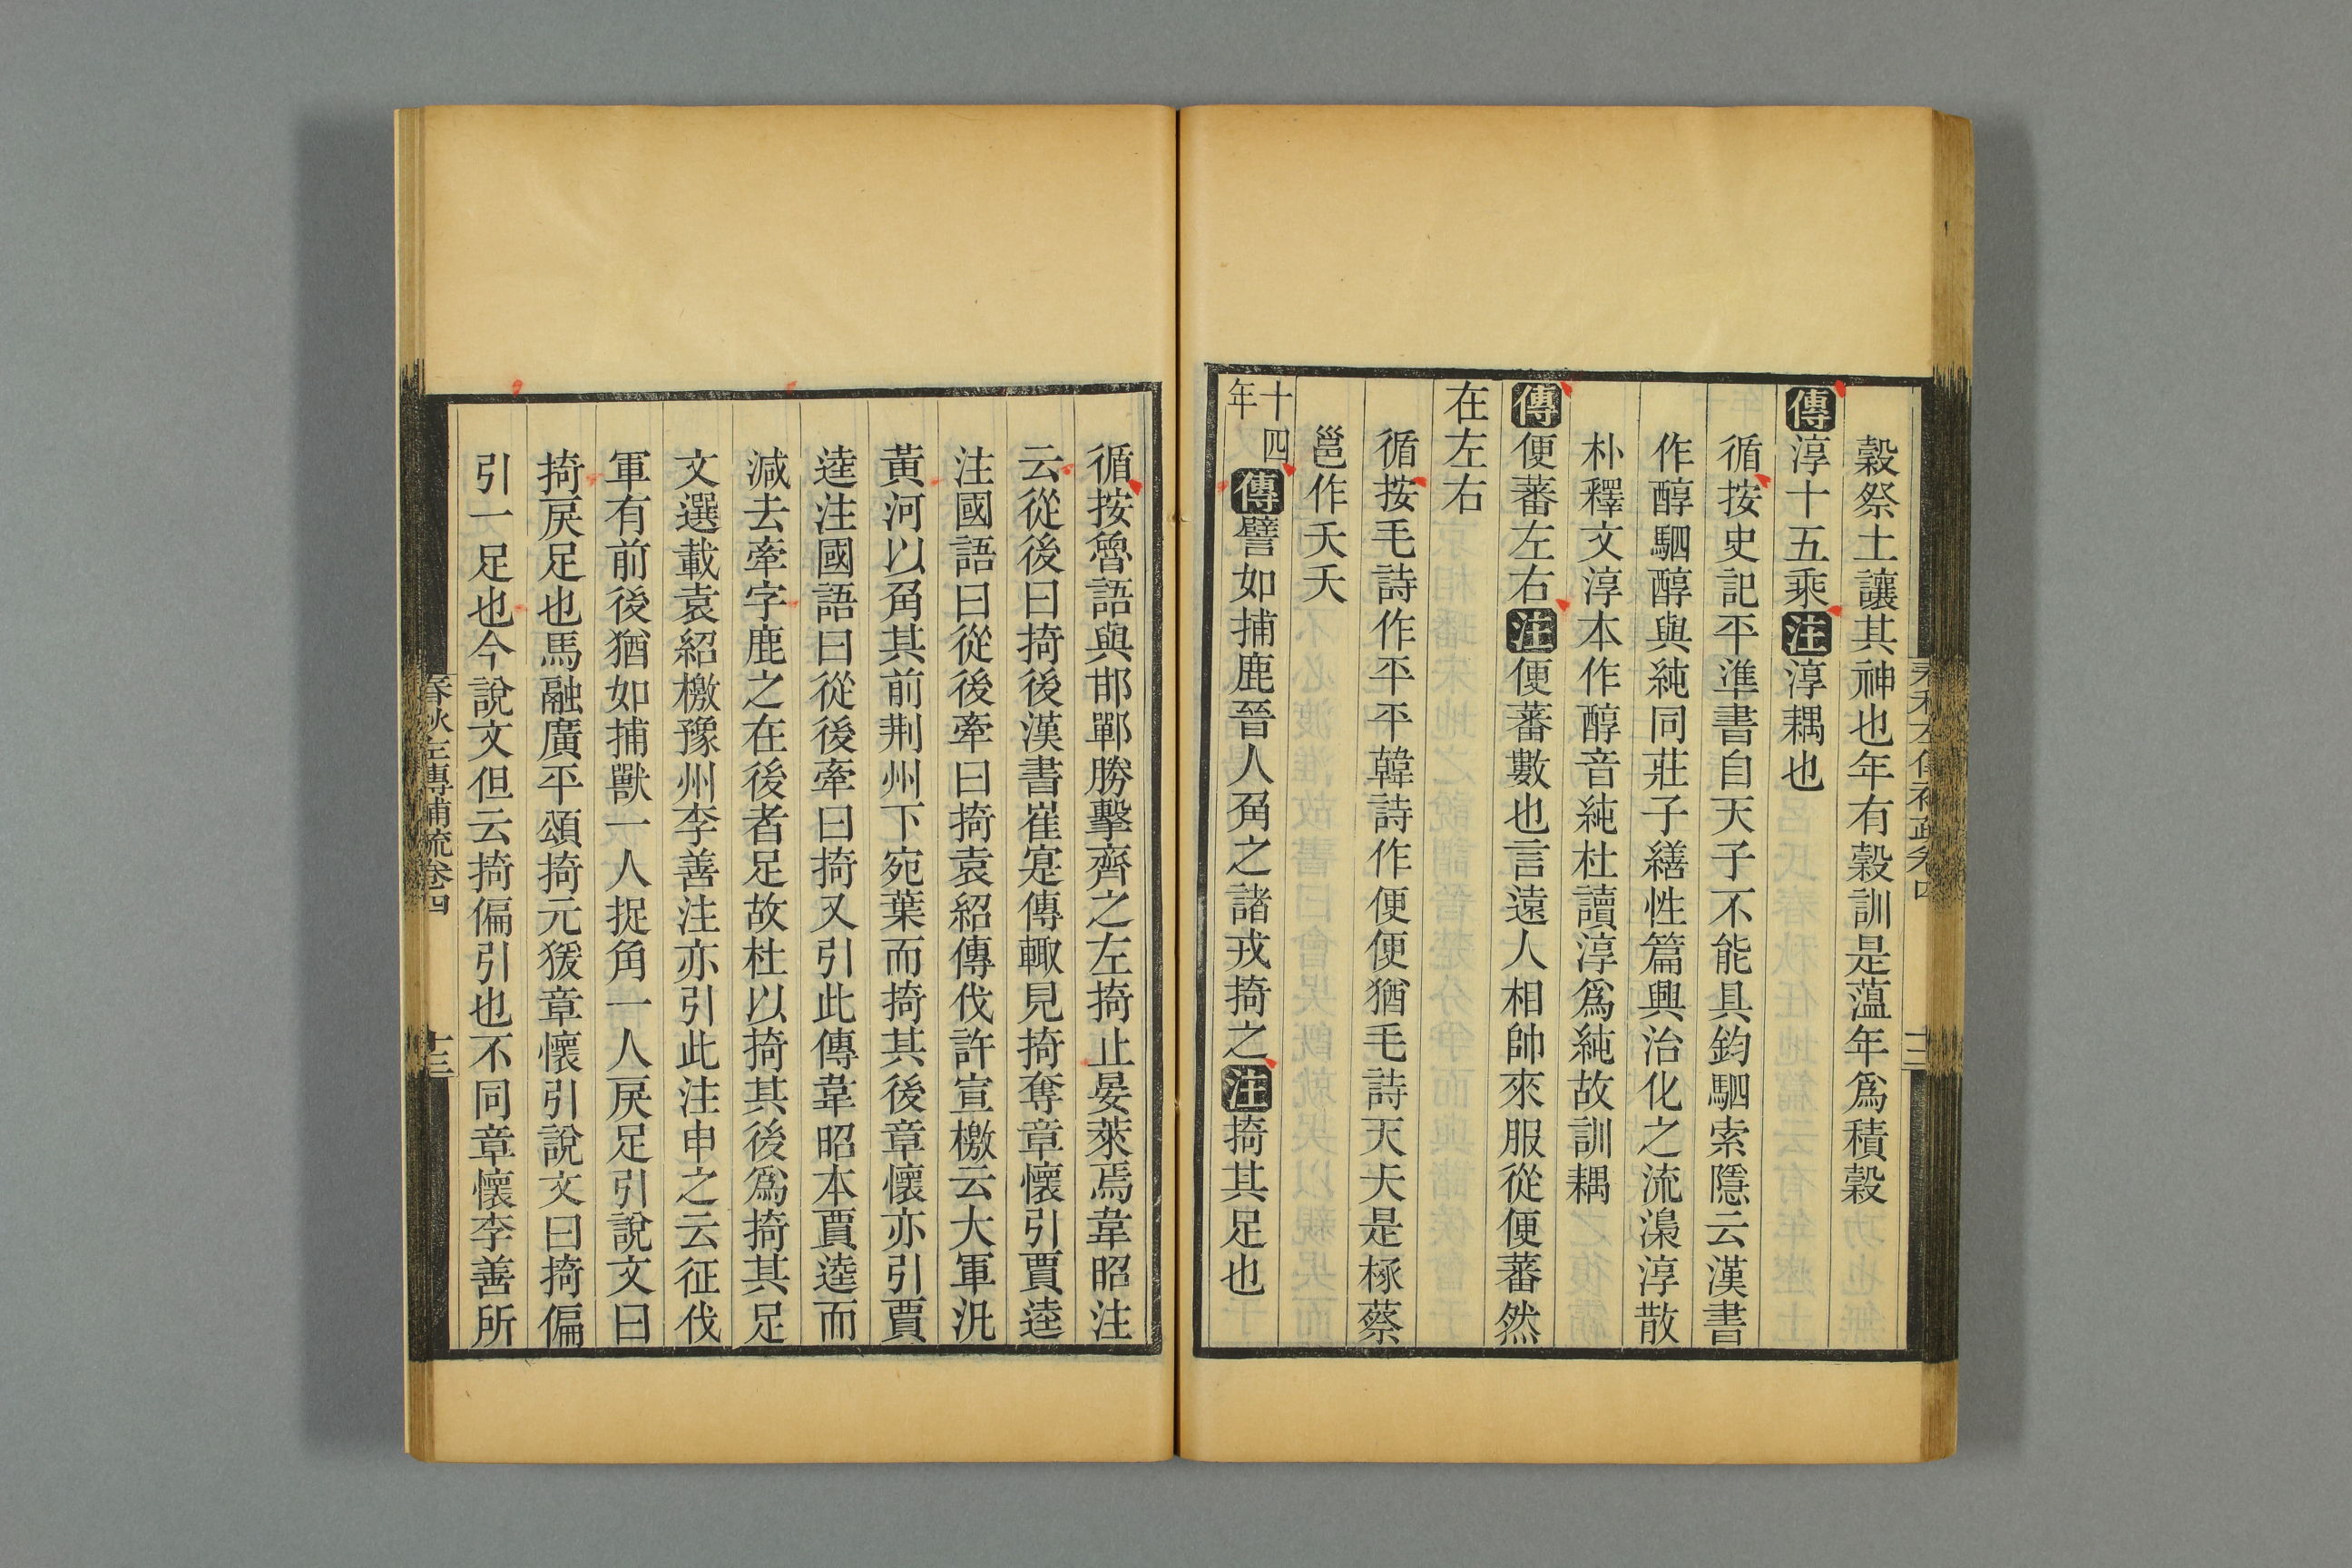 穀祭土讓其神也年有穀訓是蕰年爲積穀
傳淳十五乘注淳耦也
循按史記平準書自天子不能具鈞駟索隱云漢書
作醇駟醇與純同莊子繕性篇興治化之流澡淳散
朴釋文淳本作醇音純杜讀淳爲純故訓耦
傳便蕃左右注便蕃數也言遠人相帥來服從便蕃然
在左右
循按毛詩作平平韓詩作便便猶毛詩天夭是椓蔡
邕作夭夭
十四年傳譬如捕鹿晉人角之諸戎掎之注掎其足也
循按魯語與邯鄲勝擊齊之左掎止晏萊焉韋昭注
云從後曰掎後漢書崔寔傳輙見掎奪章懷引賈逵
注國語曰從後牽曰掎袁紹傳伐許宣檄云大軍汎
黃河以角其前荆州下宛葉而掎其後章懷亦引賈
逵注國語曰從後牽曰掎又引此傳韋昭本賈逵而
減去牽字鹿之在後者足故杜以掎其後爲掎其足
文選載袁紹檄豫州李善注亦引此注申之云征伐
軍有前後猶如捕獸一人捉角一人戾足引說文曰
掎戾足也馬融廣平頌掎元猨章懷引說文曰掎偏
引一足也今說文但云掎偏引也不同章懷李善所
春秋左傳補疏卷四
十三